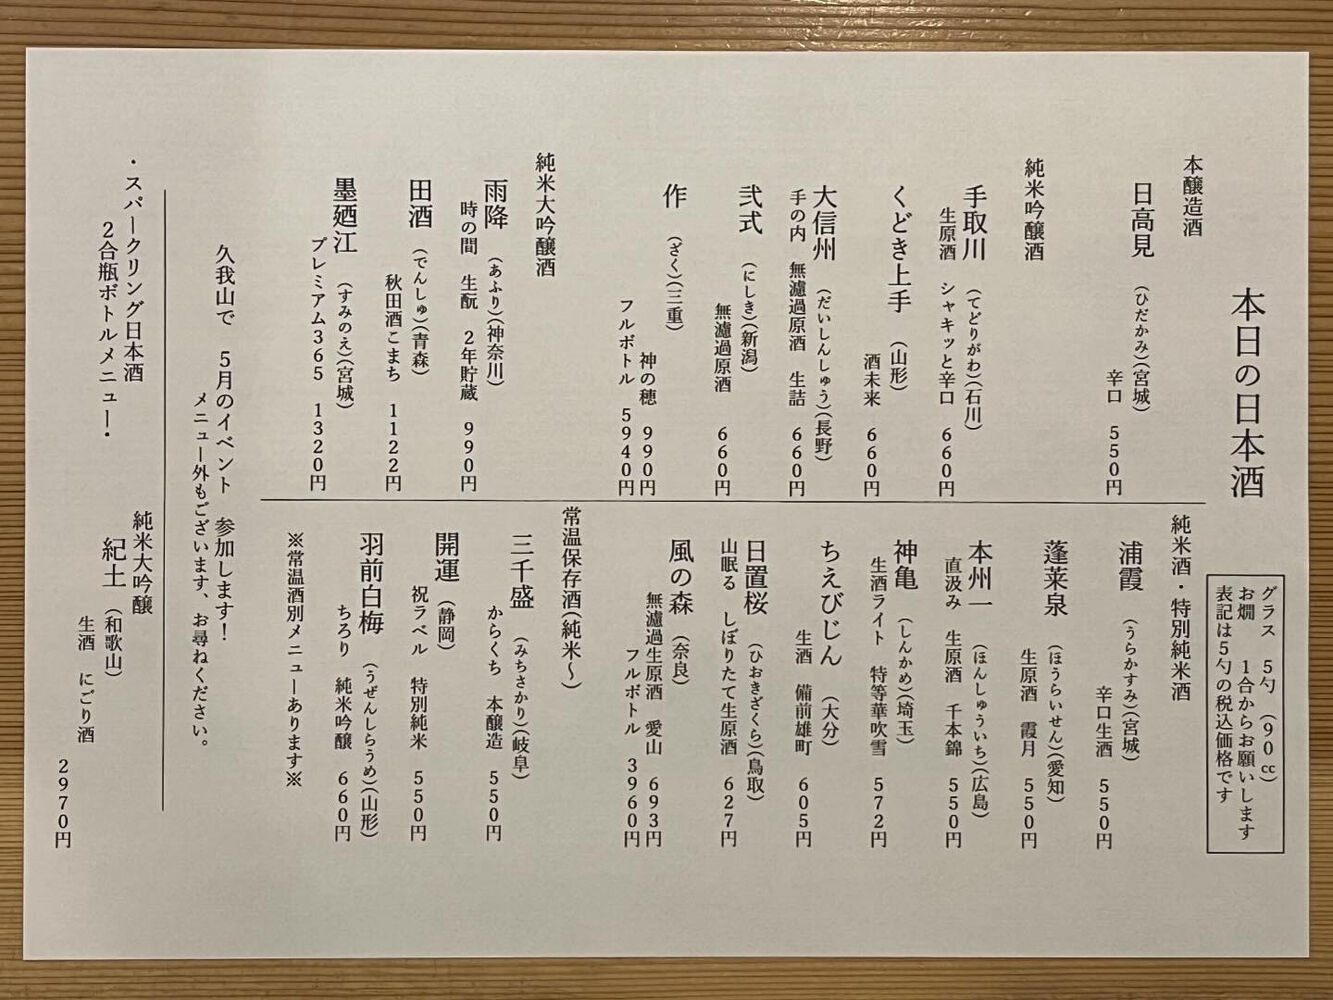 本日の日本酒
グラス　5勺　（90㏄）
お燗　1合からお願いします
表記は5勺の税込価格です
本醸造酒
日高見　（ひだかみ）（宮城）
辛口　550円
純米吟醸酒
手取川　（てどりがわ）（石川）
生原酒　シャキッと辛口　660円
くどき上手　（山形）
酒未来　660円
大信州　（だいしんしゅう）（長野）
手の内　無濾過原酒　生詰　660円
弐式　（にしき）（新潟）
無濾過原酒　660円
作　（ざく）（三重）
神の穂　990円
フルボトル　5940円
純米大吟醸酒
雨降　（あふり）（神奈川）
時の間　生酛　2年貯蔵　990円
田酒　（でんしゅ）（青森）
秋田酒こまち　1122円
墨廼江　（すみのえ）（宮城）
プレミアム365　1320円
純米酒・特別純米酒
浦霞　（うらかすみ）（宮城）
辛口生酒　550円
蓬莱泉　（ほうらいせん）（愛知）
生原酒　霞月　550円
本州一　（ほんしゅういち）（広島）
直汲み　生原酒　千本錦　550円
神亀　（しんかめ）（埼玉）
生酒ライト　特等華吹雪　572円
ちえびじん　（大分）
生酒　備前雄町　605円
日置桜　（ひおきざくら）（鳥取）
山眠る　しぼりたて生原酒　627円
風の森　（奈良）
無濾過生原酒　愛山　693円
フルボトル　3960円
常温保存酒（純米～）
三千盛　（みちさかり）（岐阜）
からくち　本醸造　550円
開運　（静岡）
祝ラベル　特別純米　550円
羽前白梅　（うぜんしらうめ）（山形）
ちろり　純米吟醸　660円
※常温酒別メニューあります※
久我山で　5月のイベント　参加します！
メニュー外もございます、お尋ねください。
・スパークリング日本酒
2合瓶ボトルメニュー・
純米大吟醸
紀土　（和歌山）
生酒　にごり酒
2970円